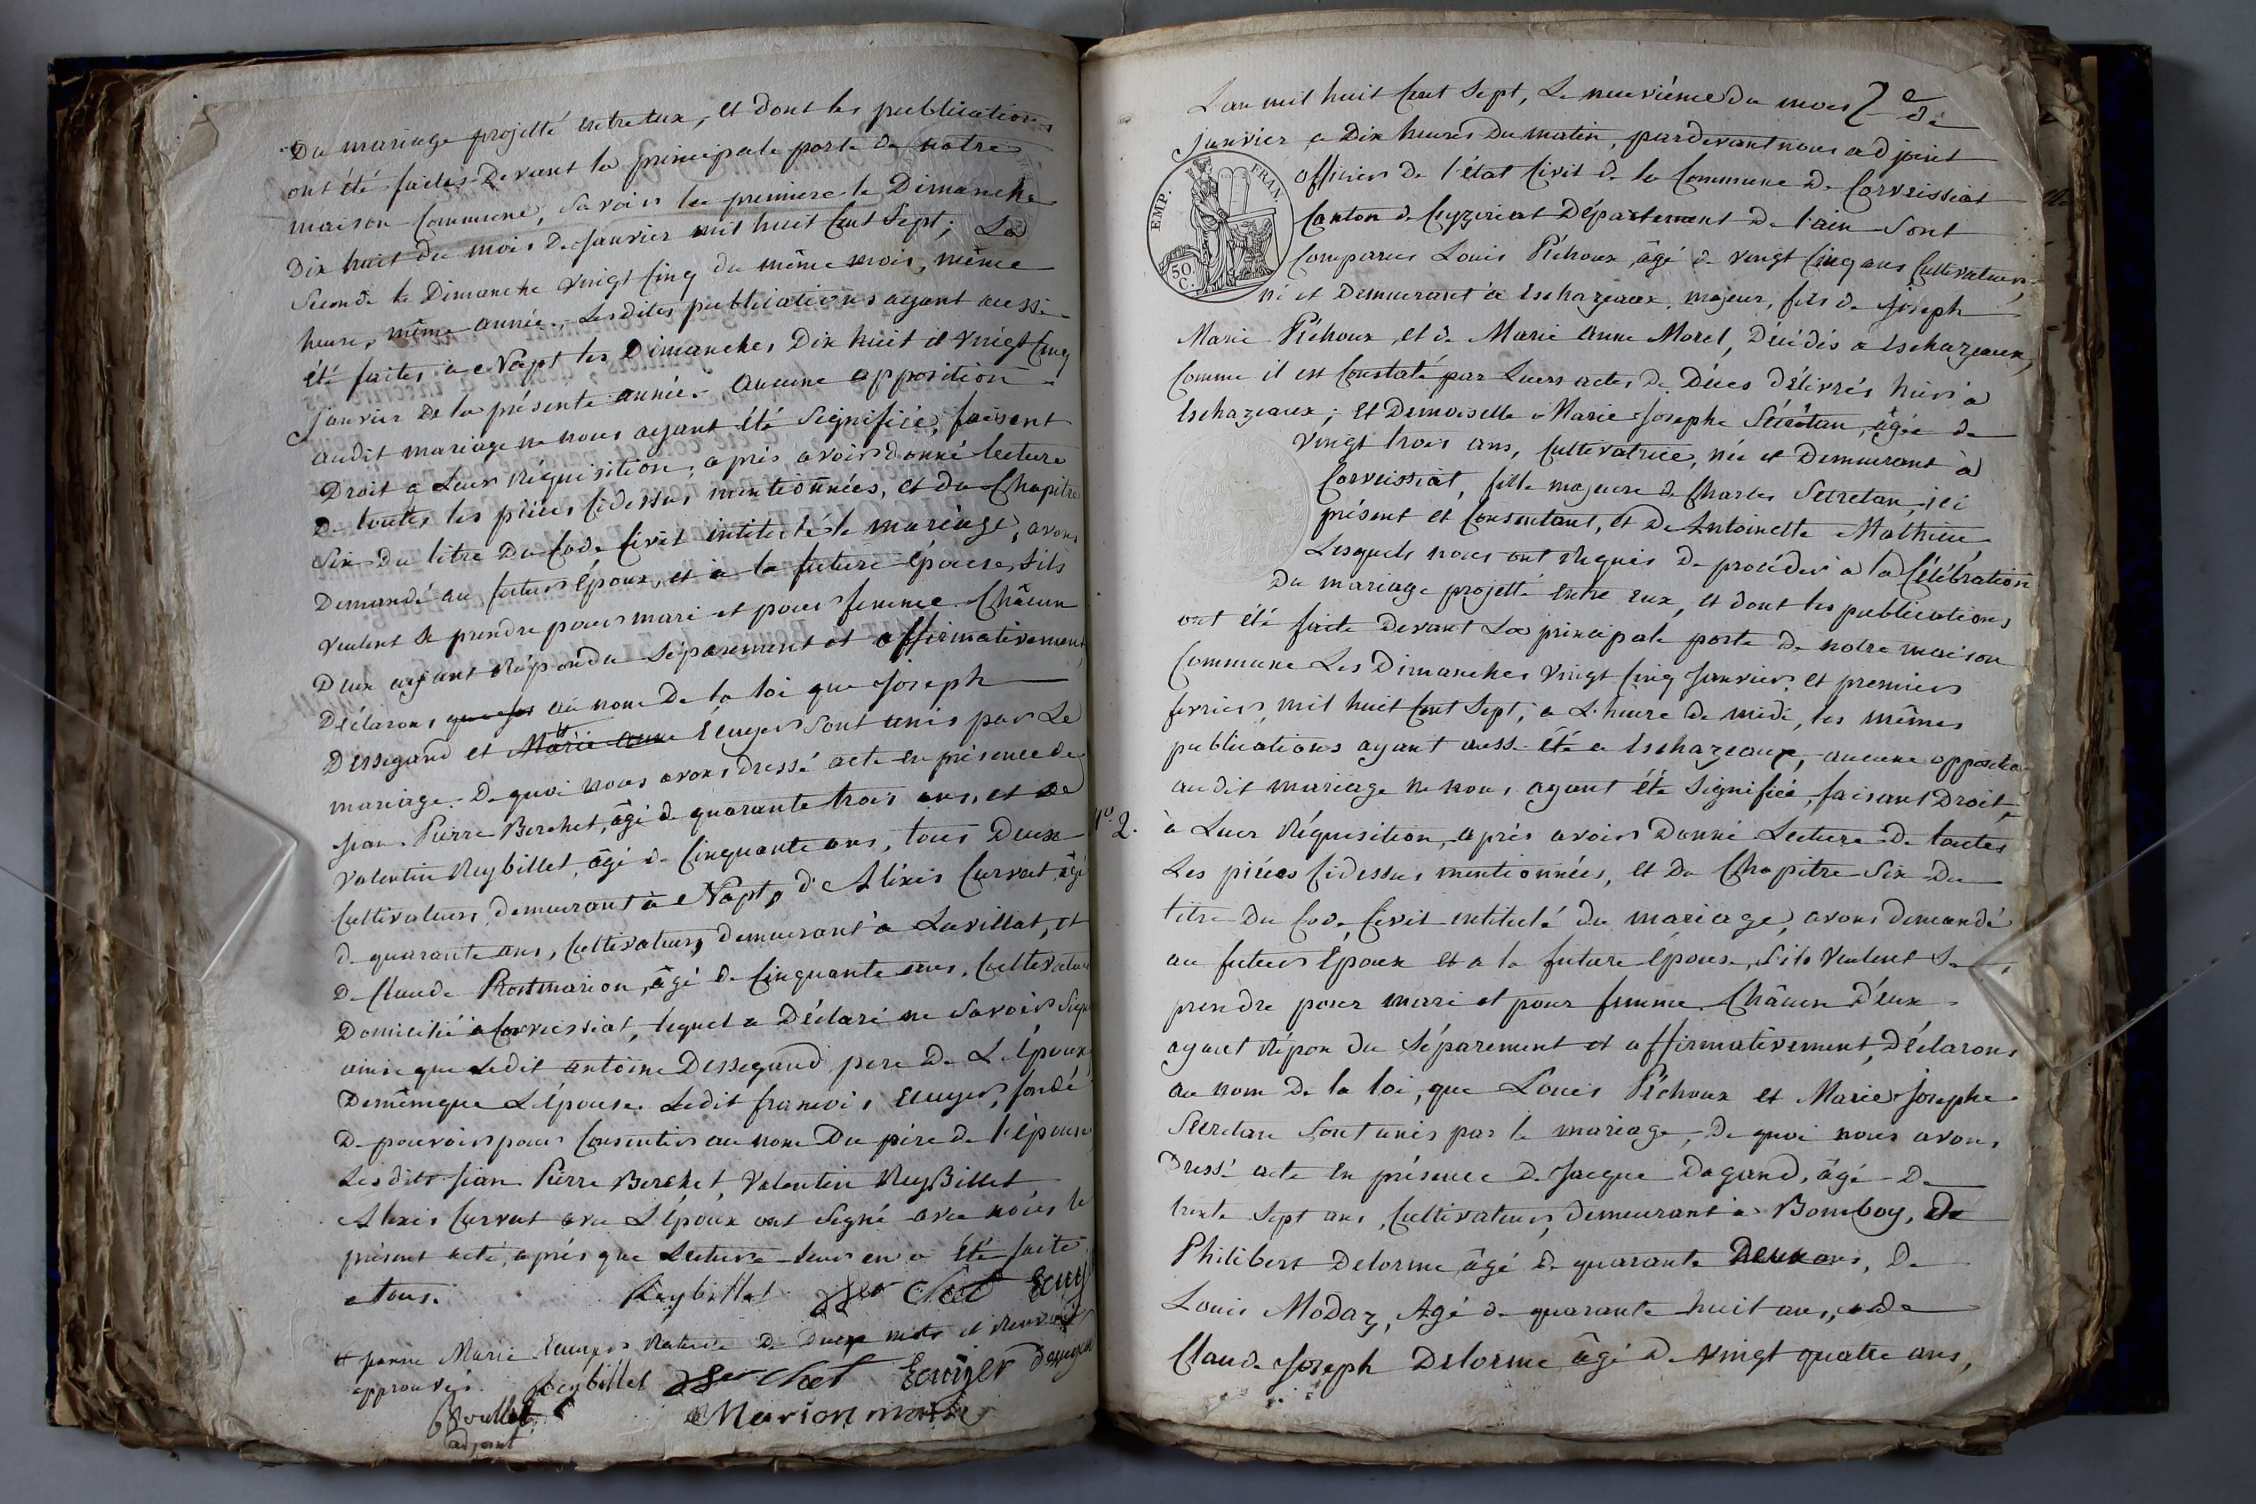 Du mariage projetté entreeux, et dont les publications
ont été faites devant la principale porte de notre
maison Commune, savoir la premiere le Dimanche
Dix huit du mois de Janvier mil huit Cent Sept; La
Seconde le Dimanche vingt Cinq du même mois, même
heure, même année, Lesdites publications ayant aussi
été faites à Napt les Dimanches Dix huit et vingt Cinq
Janvier de la présente année. Aucune opposition
audit mariage ne nous ayant été signifiée, faisant
Droit à Leur réquisition, après avoir donné lecture
De toutes les pièces Cidessus mentionnées, et du Chapitre
Six Du titre Du Code Civil intitulé le mariage, avons
Demandé au futur Époux, et à la future Épouse, S'ils
veulent se prendre pour mari et pour femme. Châcun
Deux ayant répondu séparement et affirmativement,
Déclarons que au nom de la loi que Joseph
Dessegand et Marie anne Ecuyer sont unis par Le
mariage. De quoi nous avons dressé acte en présence de
Jean Pierre Berchet, âgé de quarante trois ans, et de
Valentin Reybillet, âgé de Cinquante ans, tous Deux
Cultivateurs demeurant à Napt, d'Aléxis Curvat, âgé
de quarante ans, Cultivateur, demeurant à Lavillat, et
De Claude Rostmarion, âgé de Cinquante ans, Cultivateur
Domicilié à Corveissiat, lequel a Déclaré ne Savoir Signer
ainsi que Ledit antoine Dessegand pere De L'Époux
Demêmeque L'épouse. Ledit francois Ecuyer, fondé
De pouvoir pour Consentir au nom Du père de l'épouse
Lesdits Jean Pierre Berchet, Valentin ReyBillet
Alexis Curvat avec L'époux ont Signé avec nous le
présent acte, après que Lecture leur en a Été faite
a tous. Reybillet Ber Chet Ecuyer
approuvés. Reybillet Ber chet Ecuijer
Marion
adjoint
L'an mil huit Cent Sept, Le neuvième du mois 2 de
Janvier a Dix heures Du matin, pardevant nous adjoint
EMP. FRAN.
50. C.
officier de l'état Civil de la Commune De Corveissiat
Canton de Ceyzeriat Département De l'ain Sont
Comparus Louis Pichoux âgé de vingt Cinq ans Cultivateur,
né et Demeurant à Eschazeaux, majeur, fils de Joseph
Marie Pichoux, et de Marie Anne Morel, Décédés a Eschazeaux,
Comme il est Constaté par Leurs actes de Déces délivrés hier à
Eschazeaux; Et Demoiselle Marie Josephe Sécrétan, âgée de
vingt trois ans, Cultivatrice, née et Demeurant à
Corveissiat, fille majeure de Charles Secretan, ici
présent et Consentant, et De Antoinette Mathieu,
Lesquels nous ont requis De procéder a la Célébration
Du mariage projetté entre eux, et dont les publications
ont été faite devant La principale porte de notre maison
Commune Les Dimanches vingt Cinq Janvier et premier
fevrier, mil huit Cent Sept, a L'heure de midi, les mêmes
publications ayant aussi été a Eschazeaux, aucune opposition
audit mariage ne nous ayant été signifiée, faisant Droit,
N° 2. à Leur réquisition, après avoir Donné Lecture de toutes
Les pièces Cidessus mentionnées, et Du Chapitre Six Du
titre Du Code Civil intitulé du mariage, avons demandé
au futur Époux et a la future Epouse, S'ils veulent Se
prendre pour mari et pour femme. Châcun d'eux
ayant répondu Séparement et affirmativement, Déclarons
au nom De la loi, que Louis Pichoux et Marie Josephe
Secretan Sont unis par le mariage, de quoi nous avons
Dressé acte en présence de Jacque Dagand, âgé De
trente Sept ans, Cultivateur, demeurant à Bomboy, de
Philibert Delorme âgé de quarante Deux ans, De
Louis Modaz, Agé de quarante huit ans, et de
Claude Joseph Delorme âgé de vingt quatre ans,